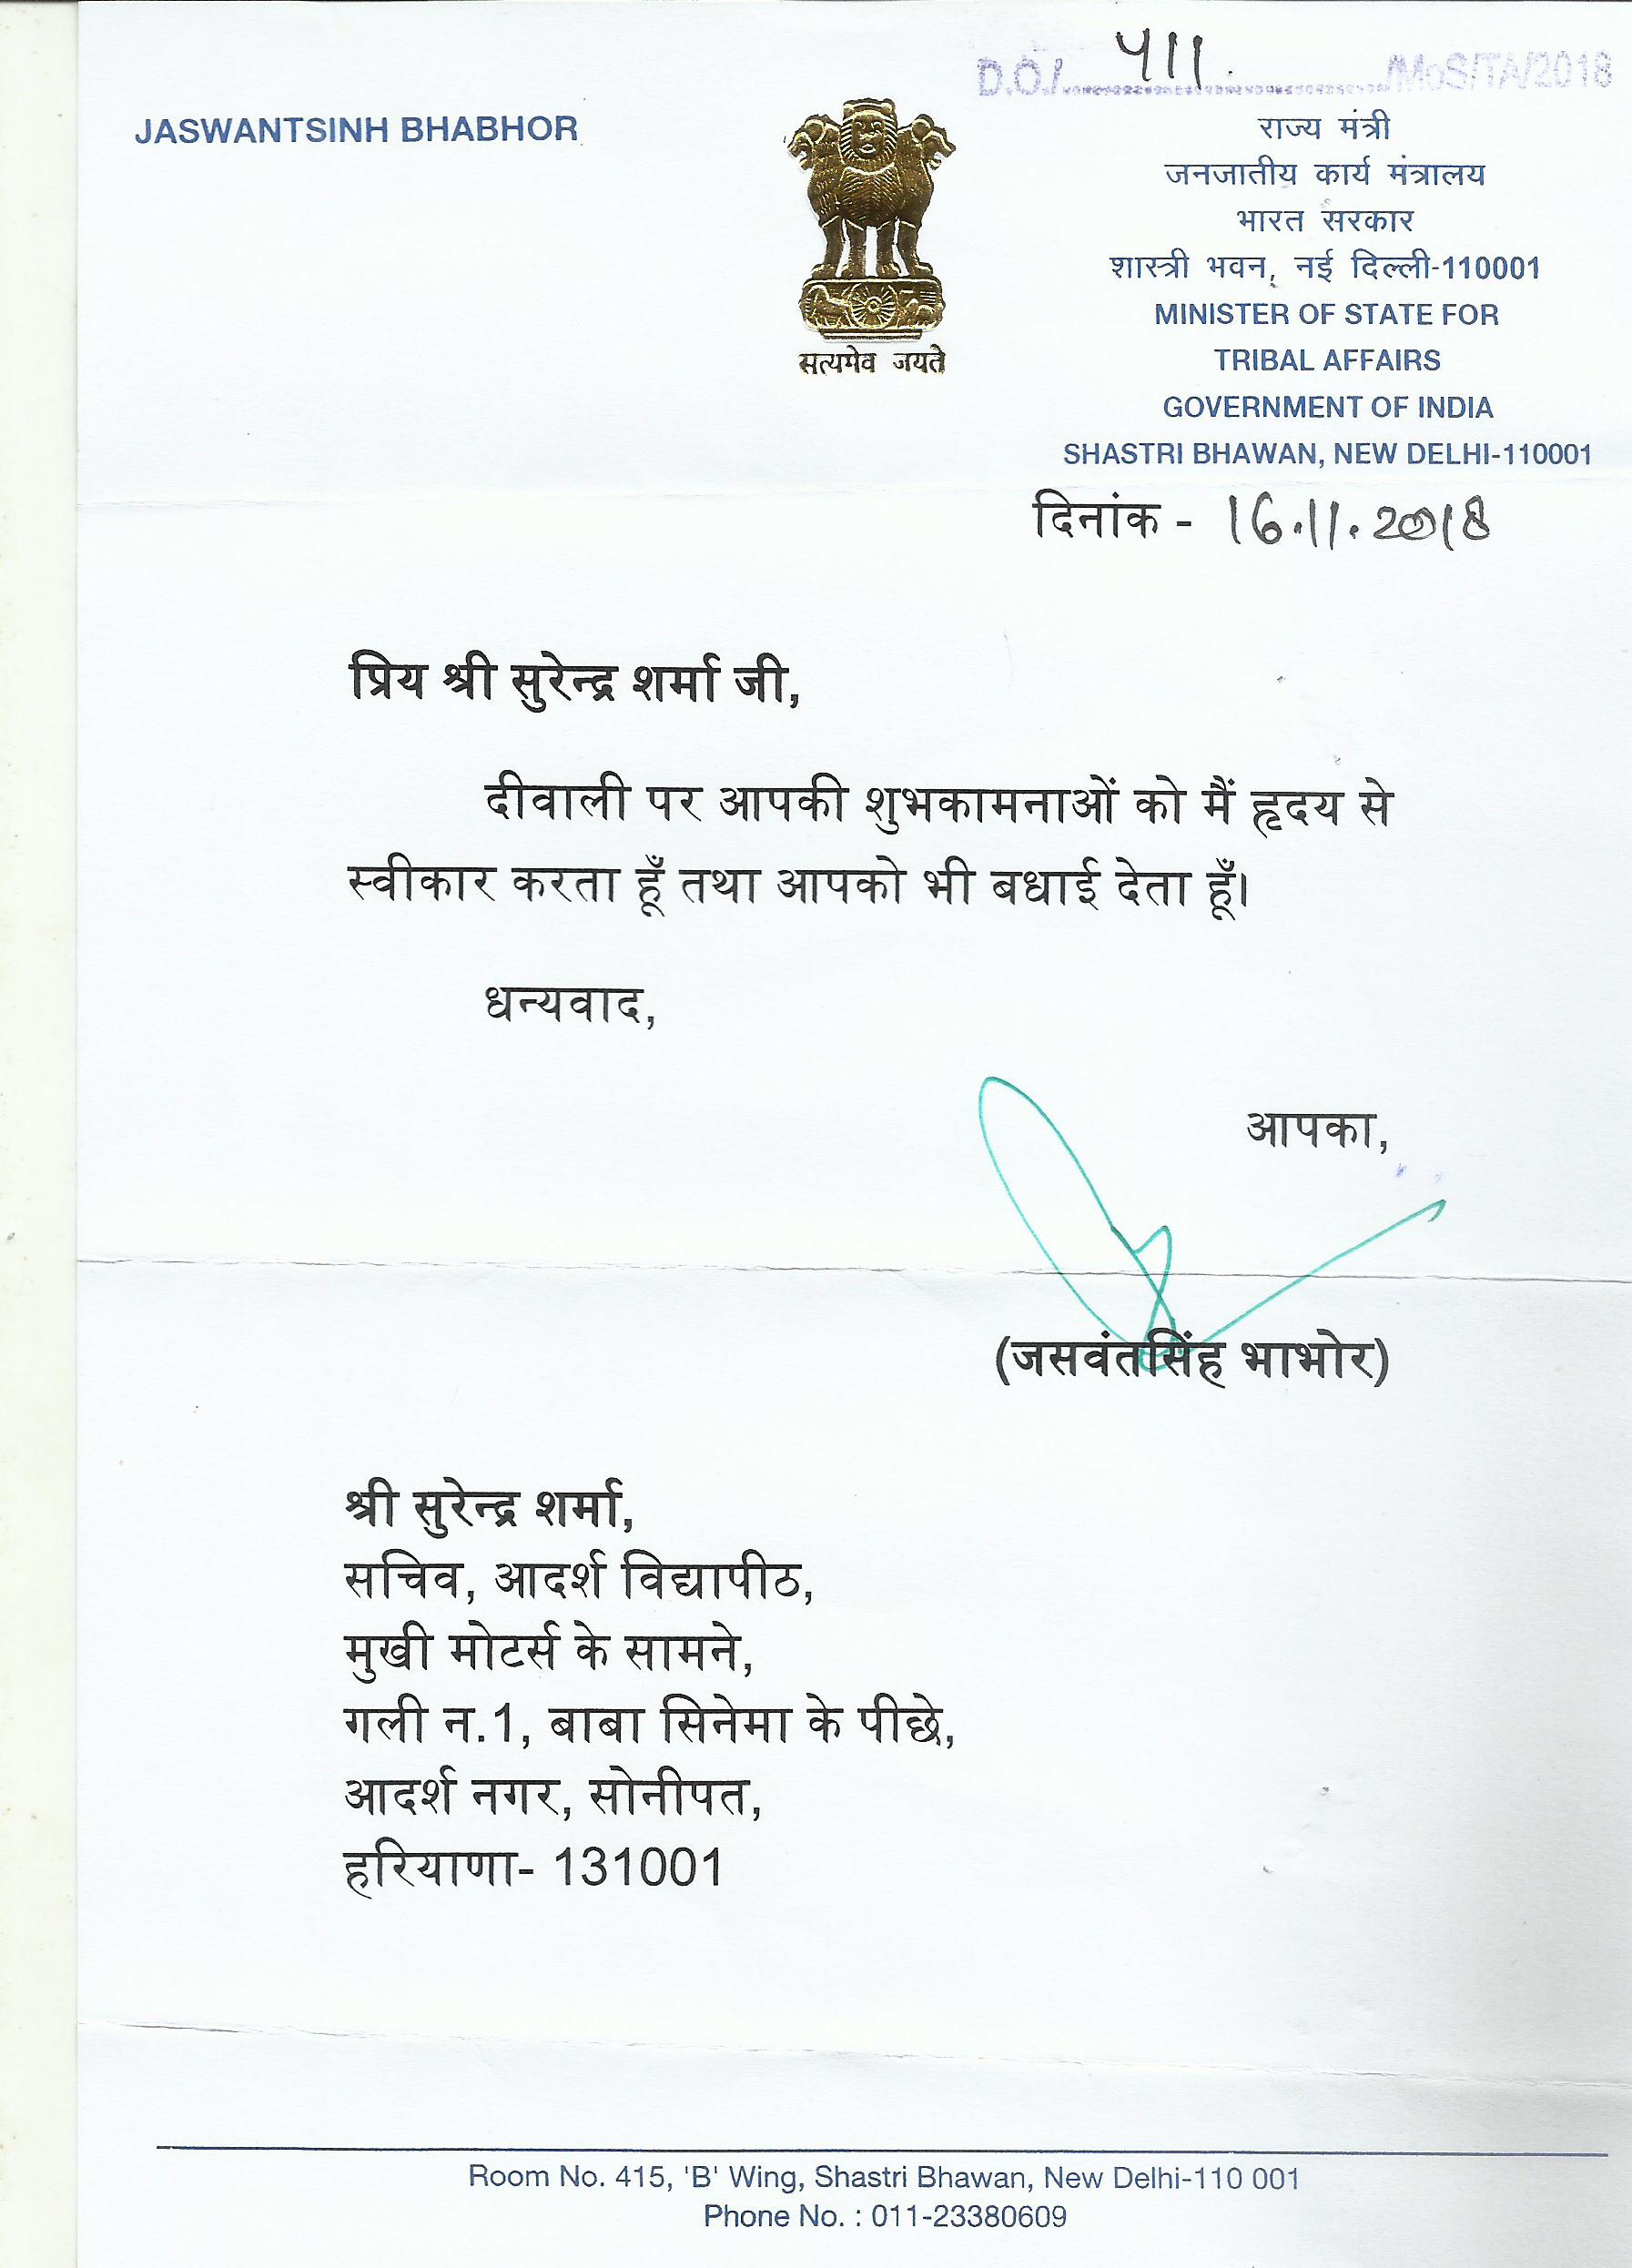 D.O./.......411......./MoS/TA/2018
JASWANTSINH BHABHOR
सत्यमेव जयते
राज्य मंत्री
जनजातीय कार्य मंत्रालय
भारत सरकार
शास्त्री भवन, नई दिल्ली-110001
MINISTER OF STATE FOR
TRIBAL AFFAIRS
GOVERNMENT OF INDIA
SHASTRI BHAWAN, NEW DELHI-110001
दिनांक - 16.11.2018
प्रिय श्री सुरेन्द्र शर्मा जी,
दीवाली पर आपकी शुभकामनाओं को मैं हृदय से
स्वीकार करता हूँ तथा आपको भी बधाई देता हूँ।
धन्यवाद,
आपका,
(जसवंतसिंह भाभोर)
श्री सुरेन्द्र शर्मा,
सचिव, आदर्श विद्यापीठ,
मुखी मोटर्स के सामने,
गली न.1, बाबा सिनेमा के पीछे,
आदर्श नगर, सोनीपत,
हरियाणा- 131001
Room No. 415, 'B' Wing, Shastri Bhawan, New Delhi-110 001
Phone No. : 011-23380609